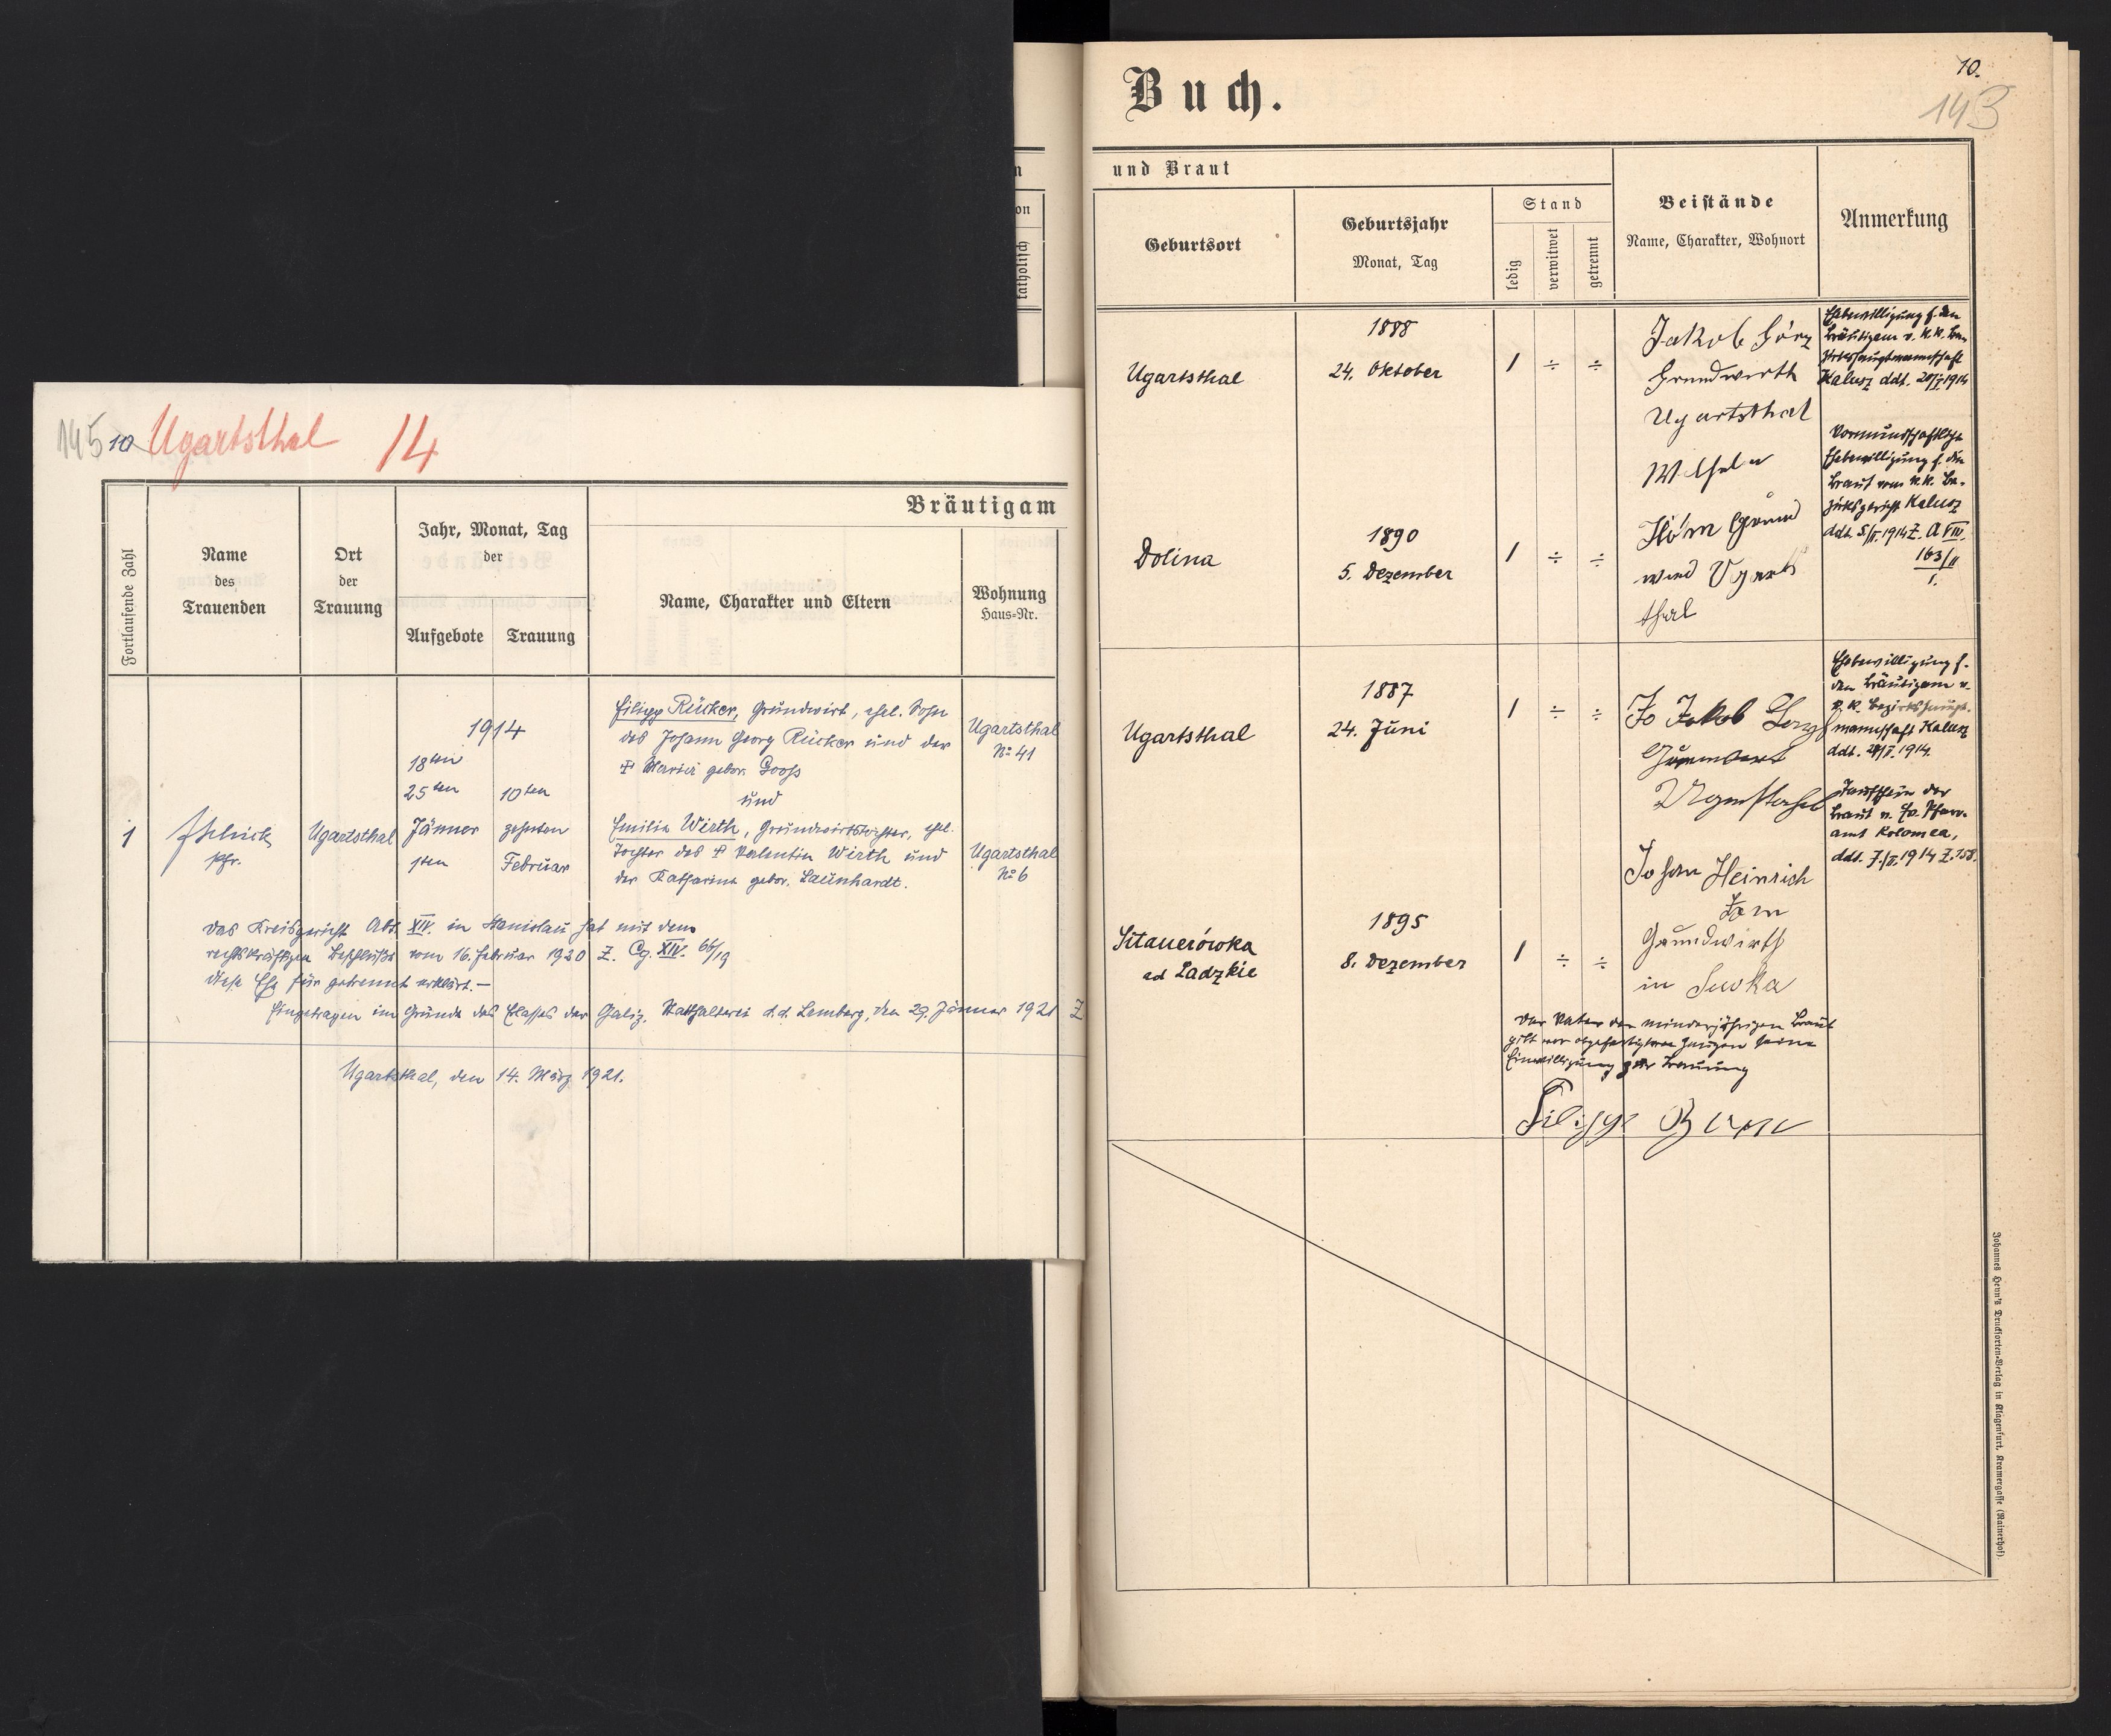 145 10 Ugartsthal 14
Bräutigam
Fortlaufende Zahl
Name
des
Trauenden
Ort
der
Trauung
Jahr, Monat, Tag
der
Aufgebote
Trauung
Name, Charakter und Eltern
Wohnung
Haus-Nr.
1
Pfr.
Ugartsthal
1914
18ten
25ten
Jänner
1ten
10ten
zehnten
Februar
Filipp Rücker, Grundwirt, ehel. Sohn
des Johann Georg Rücker und der
Maria gebor. Gooss
und
Emilie Wirth, Grundwirtstochter, ehel.
Tochter des Valentin Wirth und
der Katharina gebor. Launhardt.
Ugartsthal
No 41
Ugartsthal
No 6
Das Kreisgericht Abt. XIV. in Stanislau hat mit dem
rechtskräftigen Beschlusse vom 16. Februar 1920 Z. Cg. XIV. 66/19
diese Ehe für getrennt erklärt.—
Eingetragen im Grunde des Erlasses der Galiz. Statthalterei d.d. Lemberg, den 29. Jänner 1921 Z
Ugartsthal, den 14. März 1921.
n
on
katholisch
Buch.
10.
143
und Braut
Geburtsort
Geburtsjahr
Monat, Tag
Stand
ledig
verwitwet
getrennt
Beistände
Name, Charakter, Wohnort
Anmerkung
Ugartsthal
1888
24. Oktober
1 ÷ ÷
Jakob Görz
Grundwirth
Ugartsthal
Ehebewilligung f. den
Bräutigam v. k.k. Be-
zirkshauptmannschaft
Kalusz ddt. 20/I 1914
Dolina
1890
5. Dezember
1 ÷ ÷
Horn Grund
wird Ugarts
thal
Vormundschaftliche
Ehebewilligung f. die
Braut vom k.k. Be-
zirksgericht Kalusz
ddt. 5/II. 1914 Z. A VIII.
163/II
1.
Ugartsthal
1887
24. Juni
1 ÷ ÷
Jakob
Ehebewilligung f.
den Bräutigam v.
k.k. Bezirkshaupt-
mannschaft Kalusz
ddt. 1914.
Taufschein der
Braut v. ev. Pfarr-
amt Kolomea,
ddt. 7./II. 1914 Z. 158.
Sitauerówka
ad Ladzkie
1895
8. Dezember
1 ÷ ÷
Johan Heinrich
Grundwirth
in Siwka
Der Vater der minderjährigen Braut
gibt vor abgefertigten Zeugen seine
Einwilligung zur Trauung
Filipp
Johannes Heyn's Drucksorten-Verlag in Klagenfurt, Kramergasse (Rainerhof)